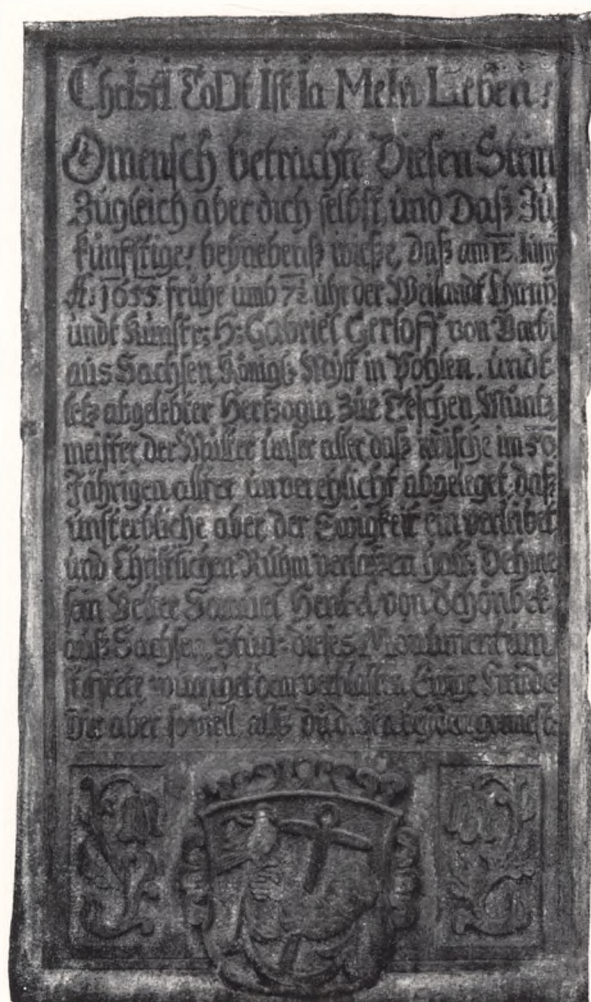 Christi ToDt Ist Ja Mein Leben:
O mensch betrachte Diesen Stein
Zugleich aber dich selbst, und Daß Zu
künfftige: wiße, Daß am 12
A: 1655 frühe umb 7½ uhr der Weilandt
undt H: Gabriel Gerloff von Barbi
aus Sachsen, Königl: Mytt in Pohlen, undt
letz abgelebter Hertzogin Zue Teschen Müntz
meister, der Mutter unser aller daß irdische im 50
Jährigen allter unverehlicht abgeleget, daß
unsterbliche aber der Ewigkeit ein verleibet
und Christlichen Ruhm verlassen hatt. Dehme
sein Vetter Samuel Henkel von Schönbek
auß Sachsen, Stud: dieses Monumentum
den Ewige Freude
Dir aber soviell alß du